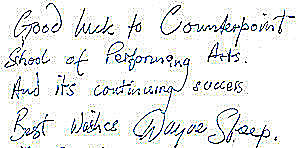 Good luck to Counterpoint
School of Performing Arts.
And its continuing success
Best Wishes Wayne Sleep.